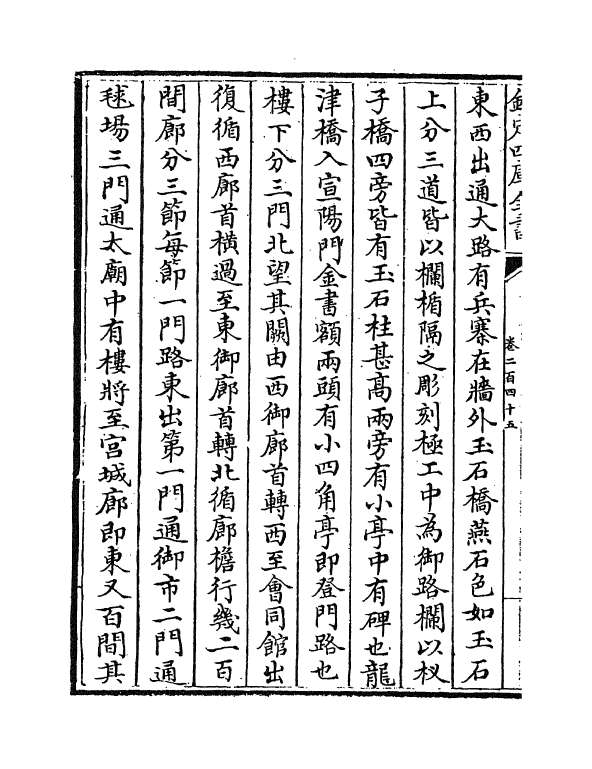 欽定四庫全書
卷二百四十五
東西出通大路有兵寨在牆外玉石橋燕石色如玉石
上分三道皆以欄楯隔之彫刻極工中為御路欄以杈
子橋四旁皆有玉石柱甚高兩旁有小亭中有碑也龍
津橋入宣陽門金書額兩頭有小四角亭即登門路也
樓下分三門北望其闕由西御廊首轉西至會同館出
復循西廊首横過至東御廊首轉北循廊檐行幾二百
間廊分三節每節一門路東出第一門通御市二門通
毬場三門通太廟中有樓將至宫城廊即東又百間其